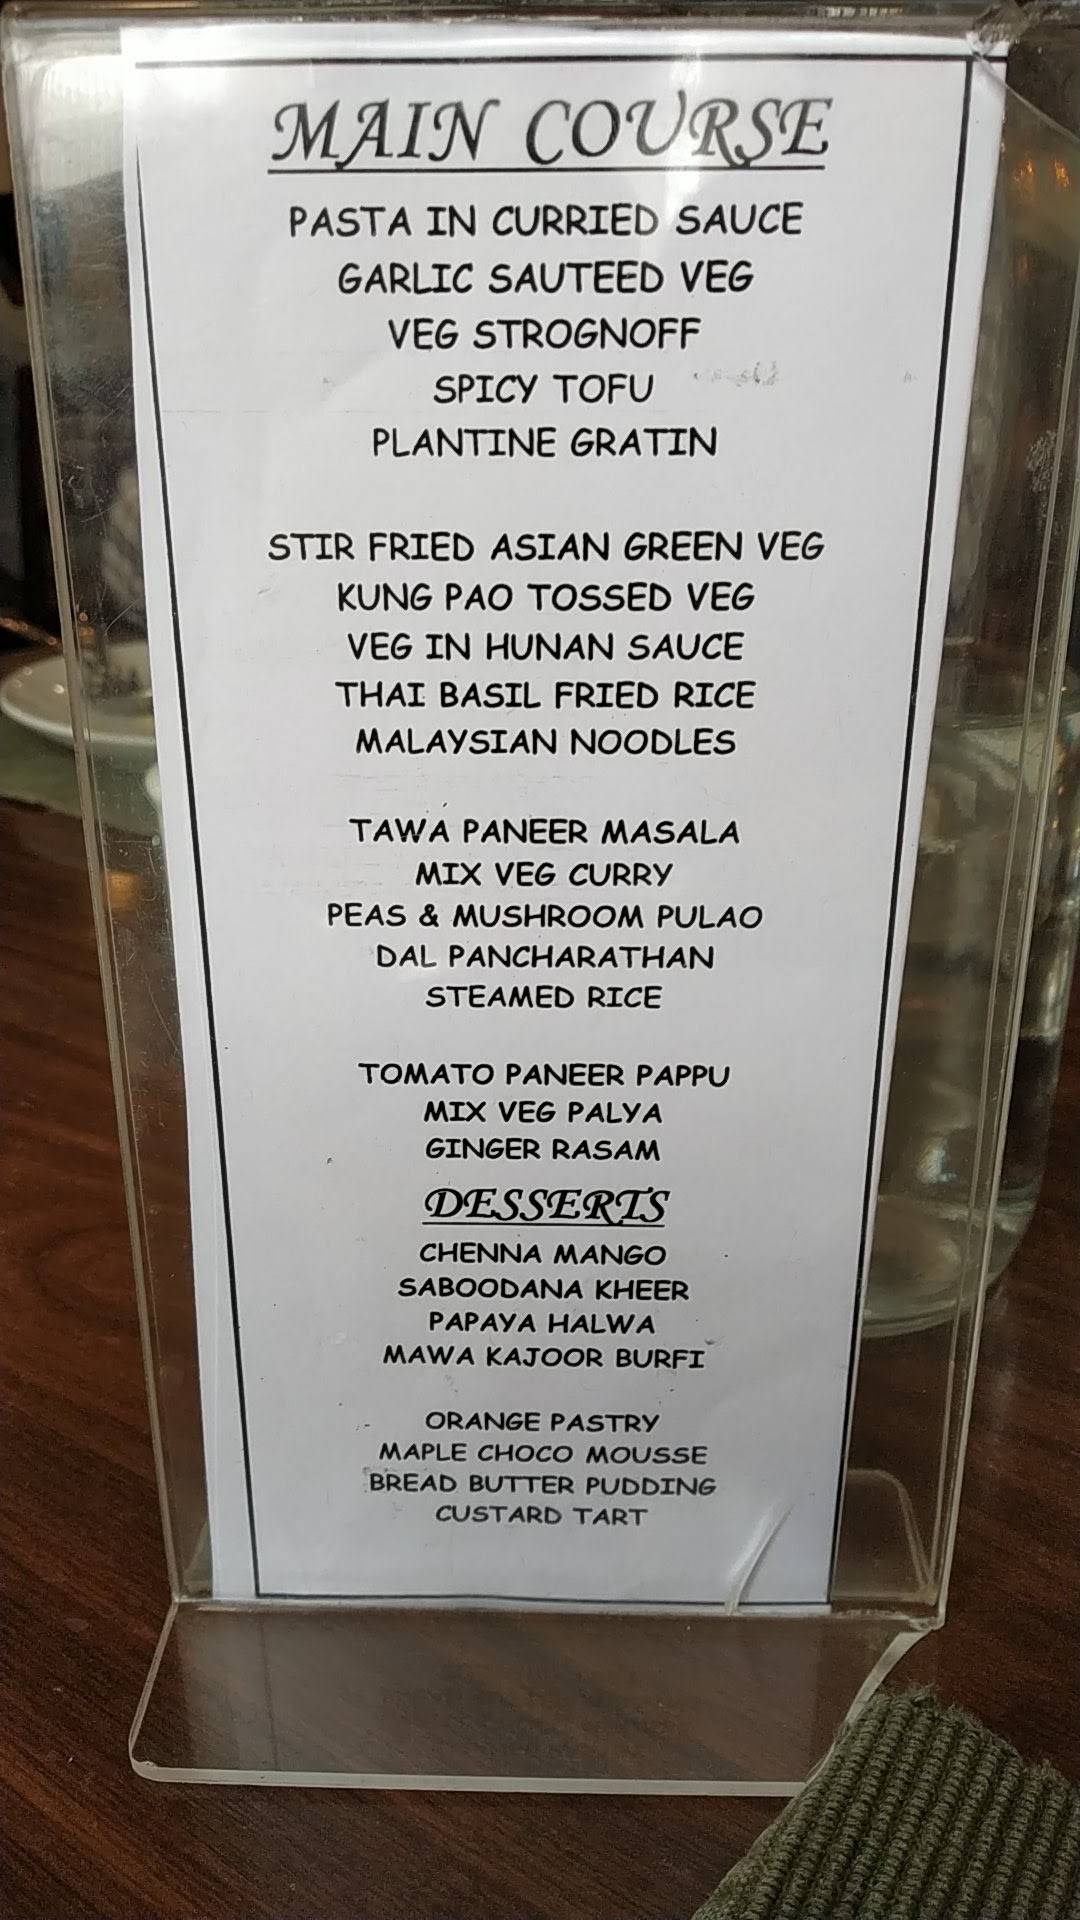 MAIN COURSE
PASTA IN CURRIED SAUCE
GARLIC SAUTEED VEG
VEG STROGNOFF
SPICY TOFU
PLANTINE GRATIN
STIR FRIED ASIAN GREEN VEG
KUNG PAO TOSSED VEG
VEG IN HUNAN SAUCE
THAI BASIL FRIED RICE
MALAYSIAN NOODLES
TAWA PANEER MASALA
MIX VEG CURRY
PEAS & MUSHROOM PULAO
DAL PANCHARATHAN
STEAMED RICE
TOMATO PANEER PAPPU
MIX VEG PALYA
GINGER RASAM
DESSERTS
CHENNA MANGO
SABOODANA KHEER
PAPAYA HALWA
MAWA KAJOOR BURFI
ORANGE PASTRY
MAPLE CHOCO MOUSSE
BREAD BUTTER PUDDING
CUSTARD TART